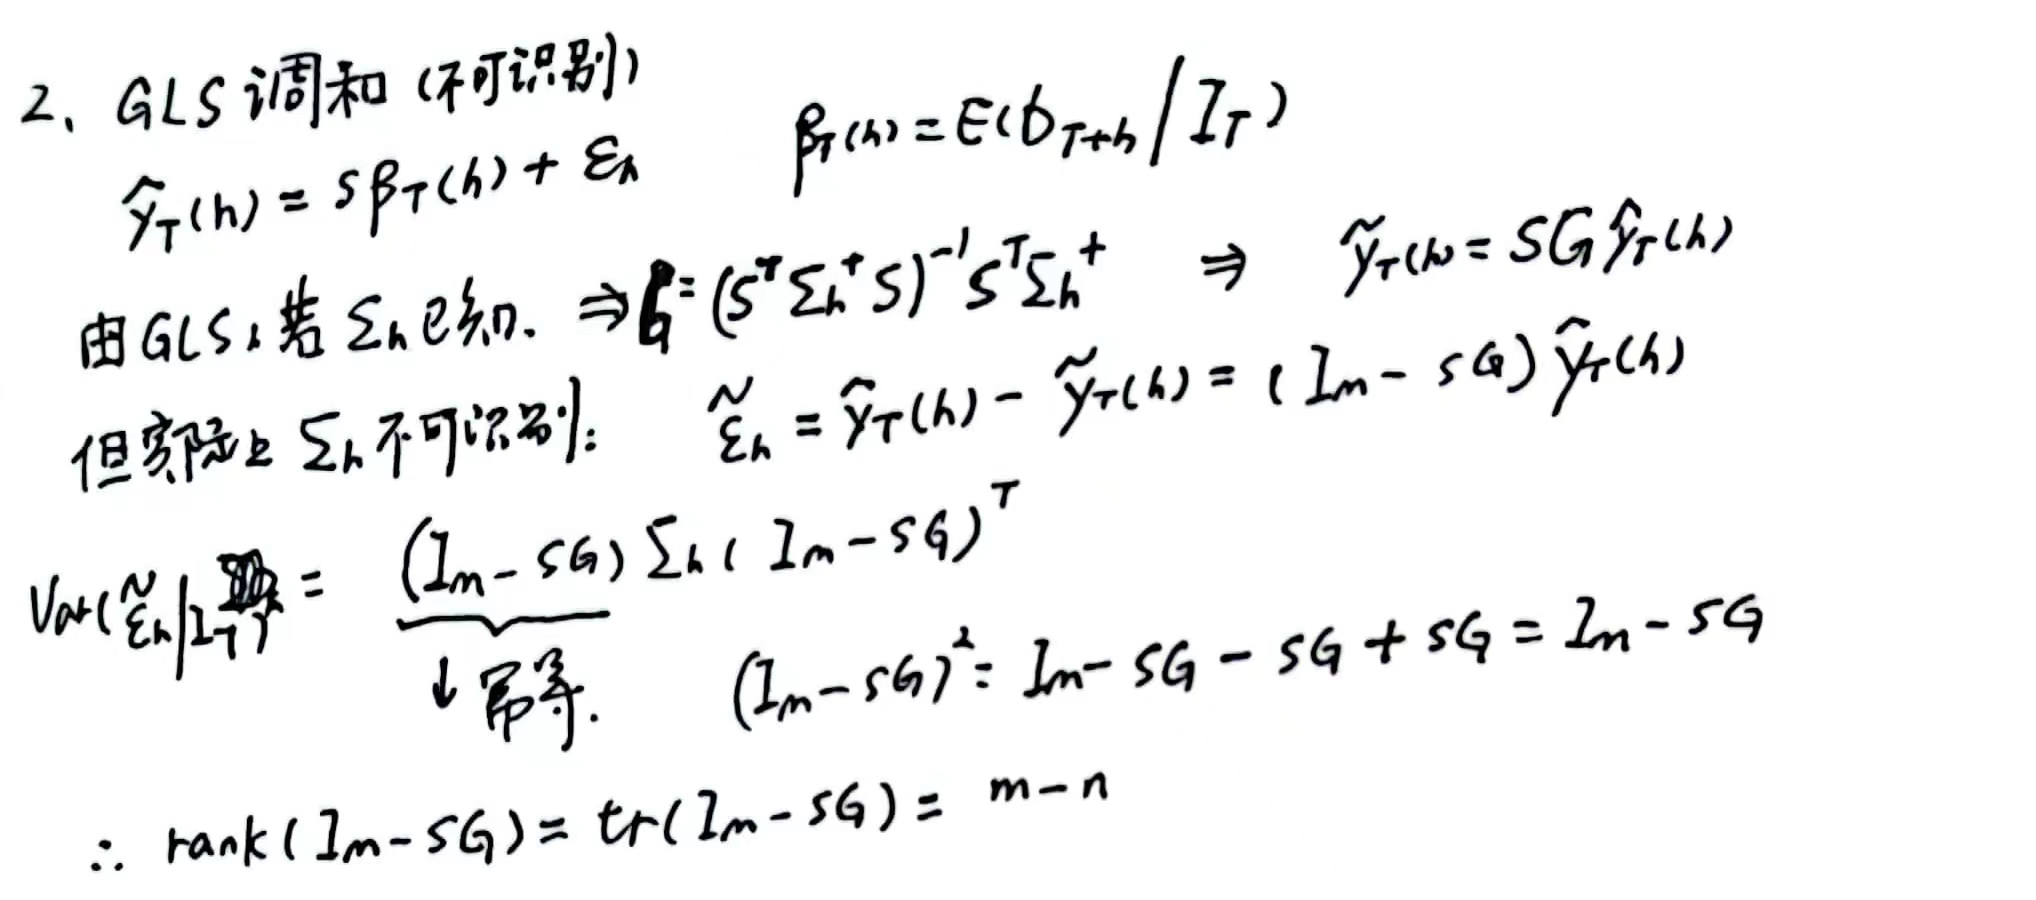 2、GLS调和(不可识别)
ŷ_T(h) = Sβ_T(h) + ε_h    β_T(h) = E(b_{T+h} / I_T)
由GLS,若Σ_h已知. ⇒ G = (S^T Σ_h^+ S)^{-1} S^T Σ_h^+ ⇒ ỹ_T(h) = SG ŷ_T(h)
但实际上 Σ_h 不可识别: ε̃_h = ŷ_T(h) − ỹ_T(h) = (I_m − SG) ŷ_T(h)
Var(ε̃_h | I_T) = (I_m − SG) Σ_h (I_m − SG)^T
↓幂等. (I_m − SG)^2 = I_m − SG − SG + SG = I_m − SG
∴ rank(I_m − SG) = tr(I_m − SG) = m − n